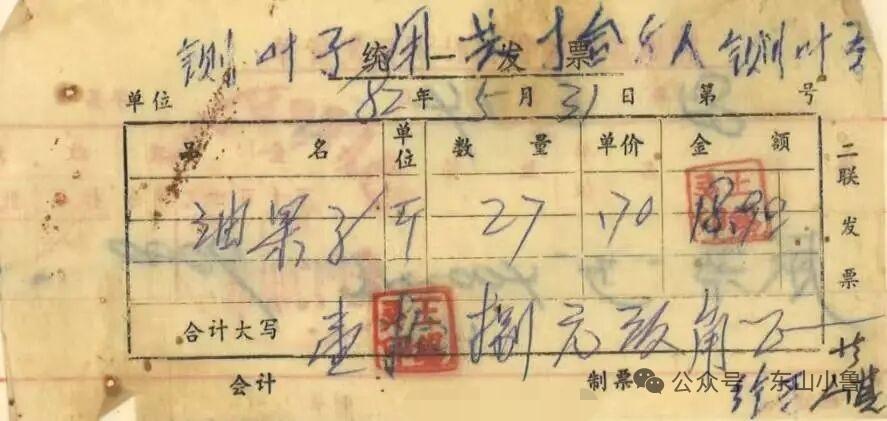 铡叶子用共拾个人铡叶子
统一发票
单位 82年5月31日 第 号
品名 单位 数量 单价 金额
油果子 斤 27 .70 18.90
合计大写 壹拾捌元玖角正
会计 制票
二联发票
公众号 · 东山小鲁